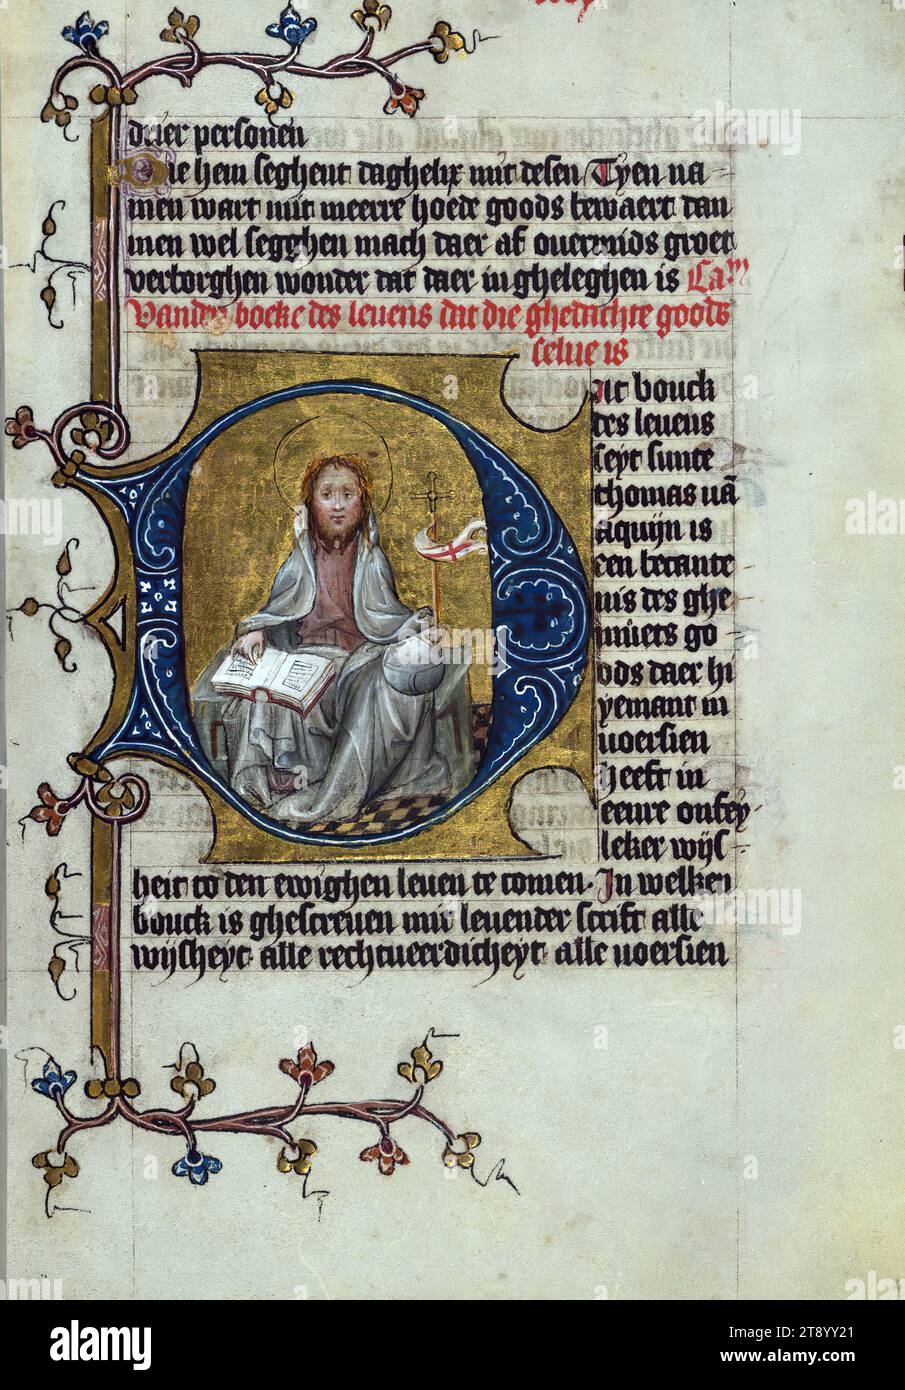 drier personen
Die hem seghent daghelix mit desen Tyen na
men wart mit meerre hoede goods bewaert dan
men wel segghen mach daer af ouermids groet
verborghen wonder dat daer in gheleghen is Cam
Vanden boeke des leuens dat die ghedachte goods
selue is
Dit bouck
des leuens
seyt sunte
thomas uā
aquijn is
een becante
nis des ghe
muets go
ods daer hi
yemant in
uoersien
heeft in
eenre onsey
leker wijs
heit to den ewighen leuen te comen. In welken
bouck is ghescreuen mit leuender scrift alle
wijsheyt alle rechtueerdicheyt alle uoersien
alamy
Image ID: 2T8YY21
www.alamy.com